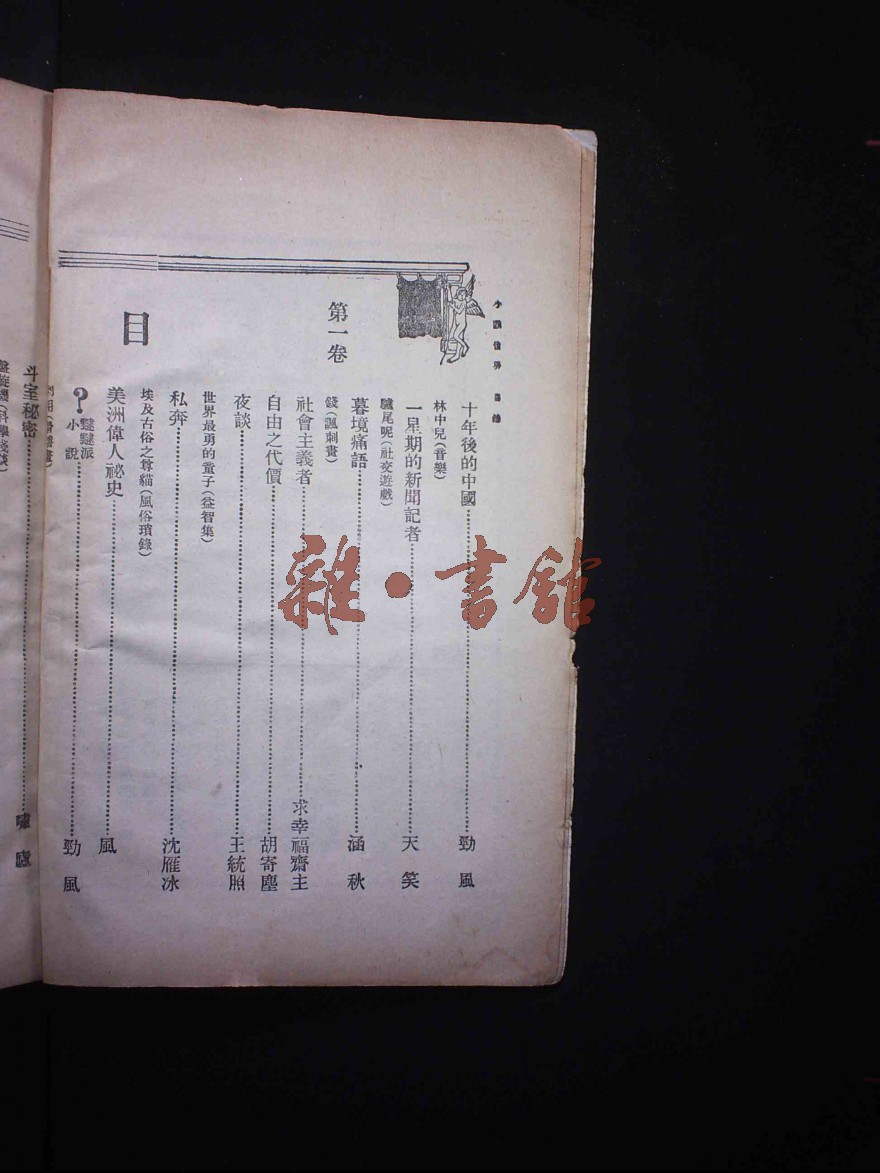 小說世界目錄
第一卷
目
十年後的中國 勁風
林中兒(音樂)
一星期的新聞記者 天笑
驢尾呢(社交遊戲)
暮境痛語 涵秋
錢(諷刺畫)
社會主義者 求幸福齋主
自由之代價 胡寄塵
夜談 王統照
世界最勇的童子(益智集)
私奔 沈雁冰
埃及古俗之尊貓(風俗瑣錄)
美洲偉人祕史 風
? 派小說 勁風
斗室秘密
雜·書館